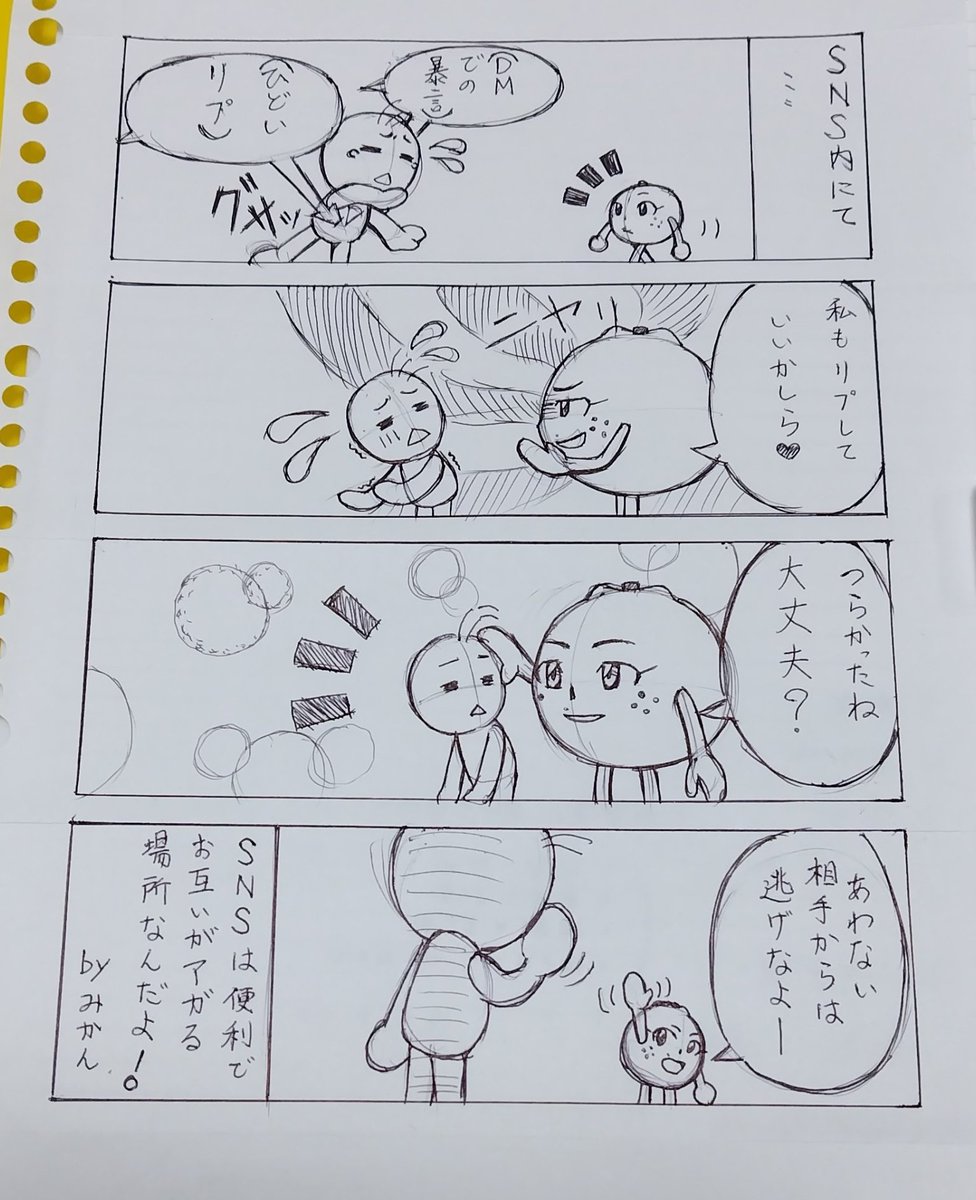 SNS内にて
……
DM
での
暴言
ひどい
リプ
グサッ
私もリプして
いいかしら♥
ニヤリ
つらかったね
大丈夫?
あわない
相手からは
逃げなよー
SNSは便利で
お互いがアガる
場所なんだよ!
byみかん